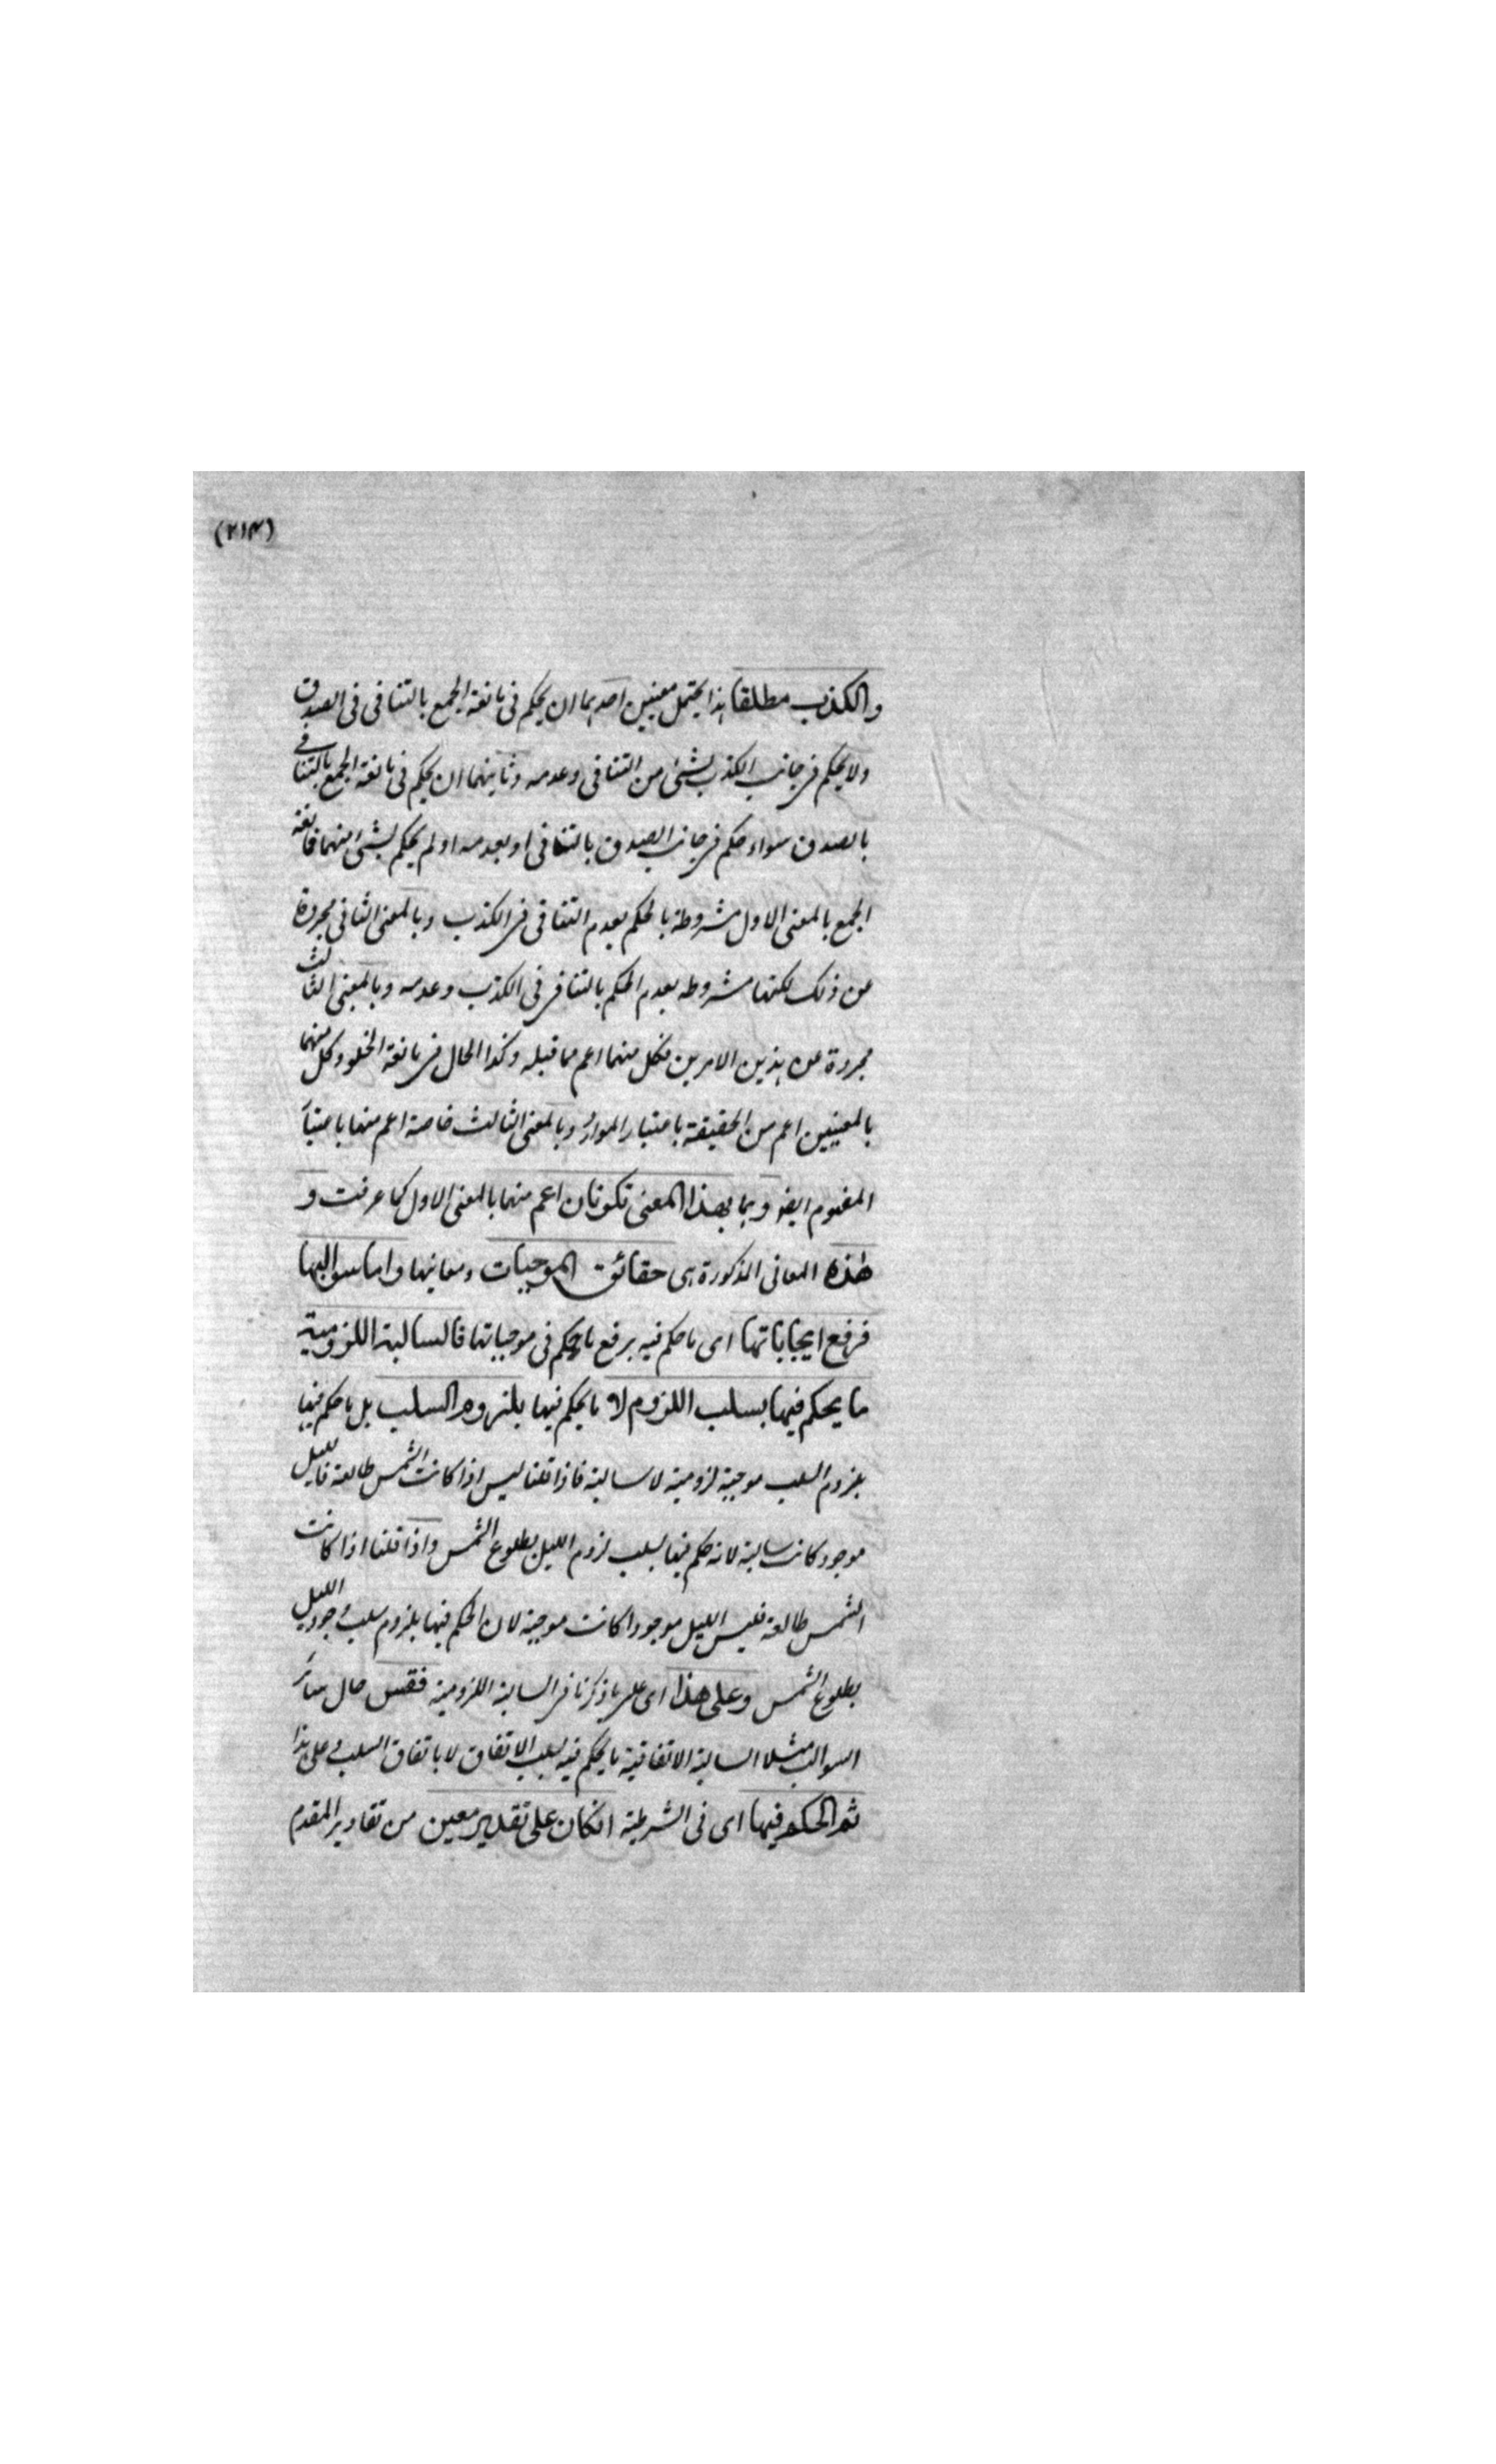 (٢١٣)
والكذب مطلقا هذا يحتمل معنيين احدهما ان يحكم فى مانعة الجمع بالتنافى فى الصدق
ولا يحكم فى جانب الكذب بشئ من التنافى وعدمه وثانيهما ان يحكم فى مانعة الجمع بالتنافى
بالصدق سواء حكم فى جانب الصدق بالتنافى او بعدمه او لم يحكم بشئ منهما فمانعة
الجمع بالمعنى الاول مشروطة بالحكم بعدم التنافى فى الكذب وبالمعنى الثانى مجردة
عن ذلك لكنها مشروطه بعدم الحكم بالتنافى فى الكذب وعدمه وبالمعنى الثالث
مجردة عن هذين الامرين فكل منهما اعم مما قبله وكذا الحال فى مانعة الخلو وكل منهما
بالمعنيين اعم من الحقيقة باعتبار المواد وبالمعنى الثالث خاصة اعم منها باعتبار
المفهوم ايضا وهما بهذا المعنى تكونان اعم منهما بالمعنى الاول كما عرفت و
هذه المعانى المذكورة هى حقائق الموجبات ومعانيها واما سوالبها
فرفع ايجاباتها اى ما حكم فيه برفع ما يحكم فى موجباتها فالسالبة اللزومية
ما يحكم فيها بسلب اللزوم لا ما يحكم فيها بلزوم السلب بل ما حكم فيها
بلزوم السلب موجبة لزومية لا سالبة فاذا قلنا ليس اذا كانت الشمس طالعة فالليل
موجود كانت سالبة لانه حكم فيها بسلب لزوم الليل بطلوع الشمس واذا قلنا اذا كانت
الشمس طالعة فليس الليل موجودا كانت موجبة لان الحكم فيها بلزوم سلب وجود الليل
بطلوع الشمس وعلى هذا اى على ما ذكرنا فى السالبة اللزومية فقس حال سائر
السوالب مثلا السالبة الاتفاقية ما يحكم فيه بسلب الاتفاق لا باتفاق السلب وعلى هذا
ثم الحكم فيها اى فى الشرطية انكان على تقدير معين من تقادير المقدم